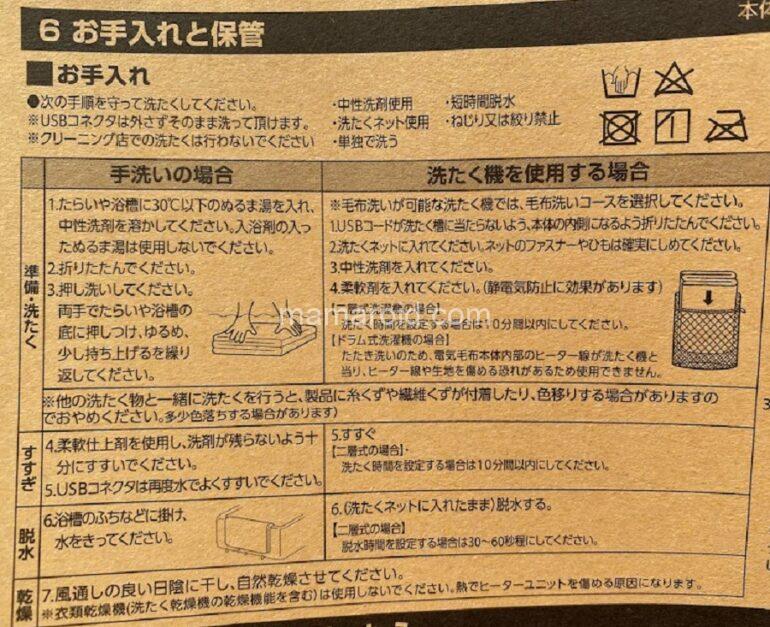 本体
6 お手入れと保管
■お手入れ
●次の手順を守って洗たくしてください。
※USBコネクタは外さずそのまま洗って頂けます。
※クリーニング店での洗たくは行わないでください
・中性洗剤使用 ・短時間脱水
・洗たくネット使用 ・ねじり又は絞り禁止
・単独で洗う
手洗いの場合
洗たく機を使用する場合
準備・洗たく
1.たらいや浴槽に30℃以下のぬるま湯を入れ、
中性洗剤を溶かしてください。入浴剤の入っ
たぬるま湯は使用しないでください。
2.折りたたんでください。
3.押し洗いしてください。
両手でたらいや浴槽の
底に押しつけ、ゆるめ、
少し持ち上げるを繰り
返してください。
※毛布洗いが可能な洗たく機では、毛布洗いコースを選択してください。
1.USBコードが洗たく槽に当たらないよう、本体の内側になるよう折りたたんでください。
2.洗たくネットに入れてください。ネットのファスナーやひもは確実にしめてください。
3.中性洗剤を入れてください。
4.柔軟剤を入れてください。(静電気防止に効果があります)
【二層式洗濯機の場合】
洗たく時間を設定する場合は10分間以内にしてください。
【ドラム式洗濯機の場合】
たたき洗いのため、電気毛布本体内部のヒーター線が洗たく機と
当り、ヒーター線や生地を傷める恐れがあるため使用できません。
mamaroid.com
※他の洗たく物と一緒に洗たくを行うと、製品に糸くずや繊維くずが付着したり、色移りする場合がありますの
でおやめください。(多少色落ちする場合があります)
すすぎ
4.柔軟仕上剤を使用し、洗剤が残らないよう十
分にすすいでください。
5.USBコネクタは再度水でよくすすいでください。
5.すすぐ
【二層式の場合】
洗たく時間を設定する場合は10分間以内にしてください。
脱水
6.浴槽のふちなどに掛け、
水をきってください。
6.(洗たくネットに入れたまま)脱水する。
【二層式の場合】
脱水時間を設定する場合は30~60秒程にしてください。
乾燥
7.風通しの良い日陰に干し、自然乾燥させてください。
※衣類乾燥機(洗たく乾燥機の乾燥機能を含む)は使用しないでください。熱でヒーターユニットを傷める原因になります。